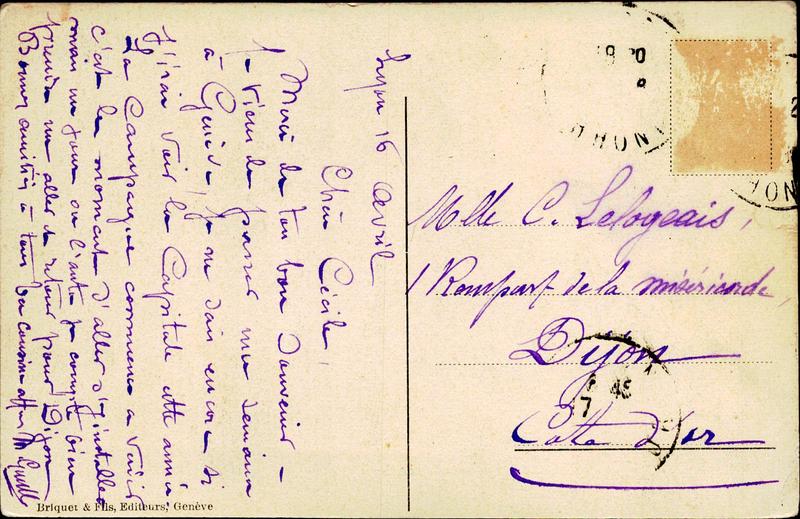 Lyon 16 Avril
Chère Cécile,
Merci de ton bon souvenir –
Je viens de passer une semaine
à Genève, je ne sais encore si
j'irai voir la Capitale cette année
La Campagne commence a
c'est le moment d'aller s'y installer
un jour ou l'autre je compte bien
prendre un aller de retour pour Dijon
Bonnes amitiés à tous ta cousine
Mlle C. Lelogeais,
1 Rempart de la miséricorde,
Dijon
Côte d'or
Briquet & Fils, Editeurs, Genève